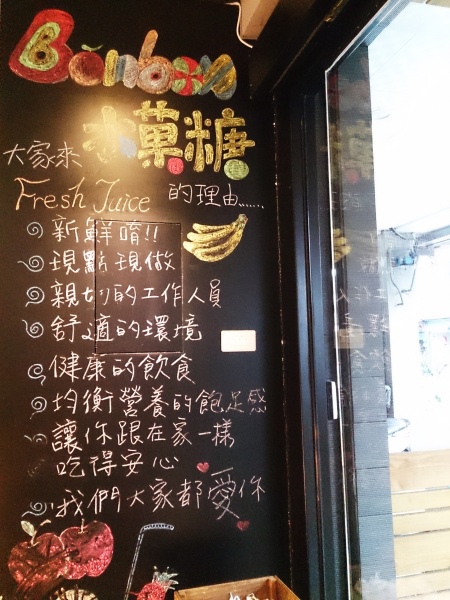 Bonbon
水菓糖
大家來
Fresh Juice 的理由......
新鮮唷!!
現點現做
親切的工作人員
舒適的環境
健康的飲食
均衡營養的飽足感
讓你跟在家一樣
吃得安心
我們大家都愛你